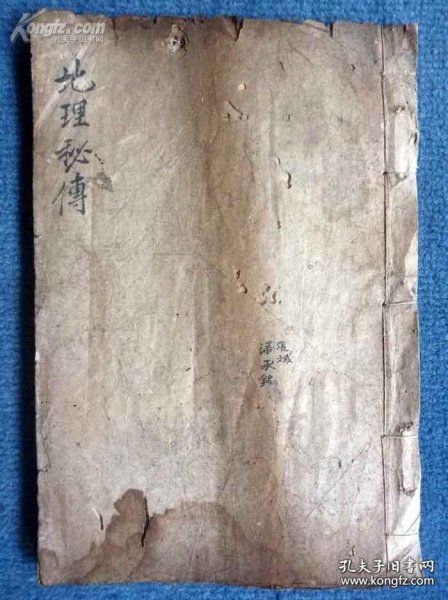 Kongfz.com
孔夫子旧书网
地理秘傳
潘承銘
孔夫子旧书网
www.kongfz.com